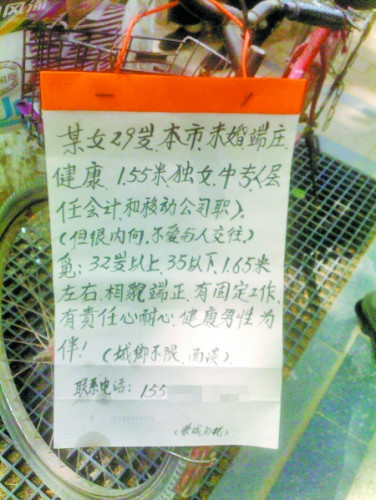 某女29岁.本市.未婚端庄.
健康.1.55米独女.中专(曾
任会计.和移动公司职).
(但很内向.不爱与人交往).
觅:32岁以上.35以下.1.65米
左右.相貌端正.有固定工作.
有责任心耐心.健康男性为
伴!(城乡不限.面谈).
联系电话:155